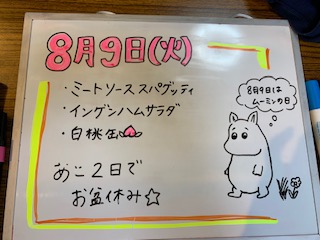 8月9日(火)
・ミートソース スパゲッティ
・インゲンハムサラダ
・白桃缶
あと2日で
お盆休み☆
8月9日は
ムーミンの日